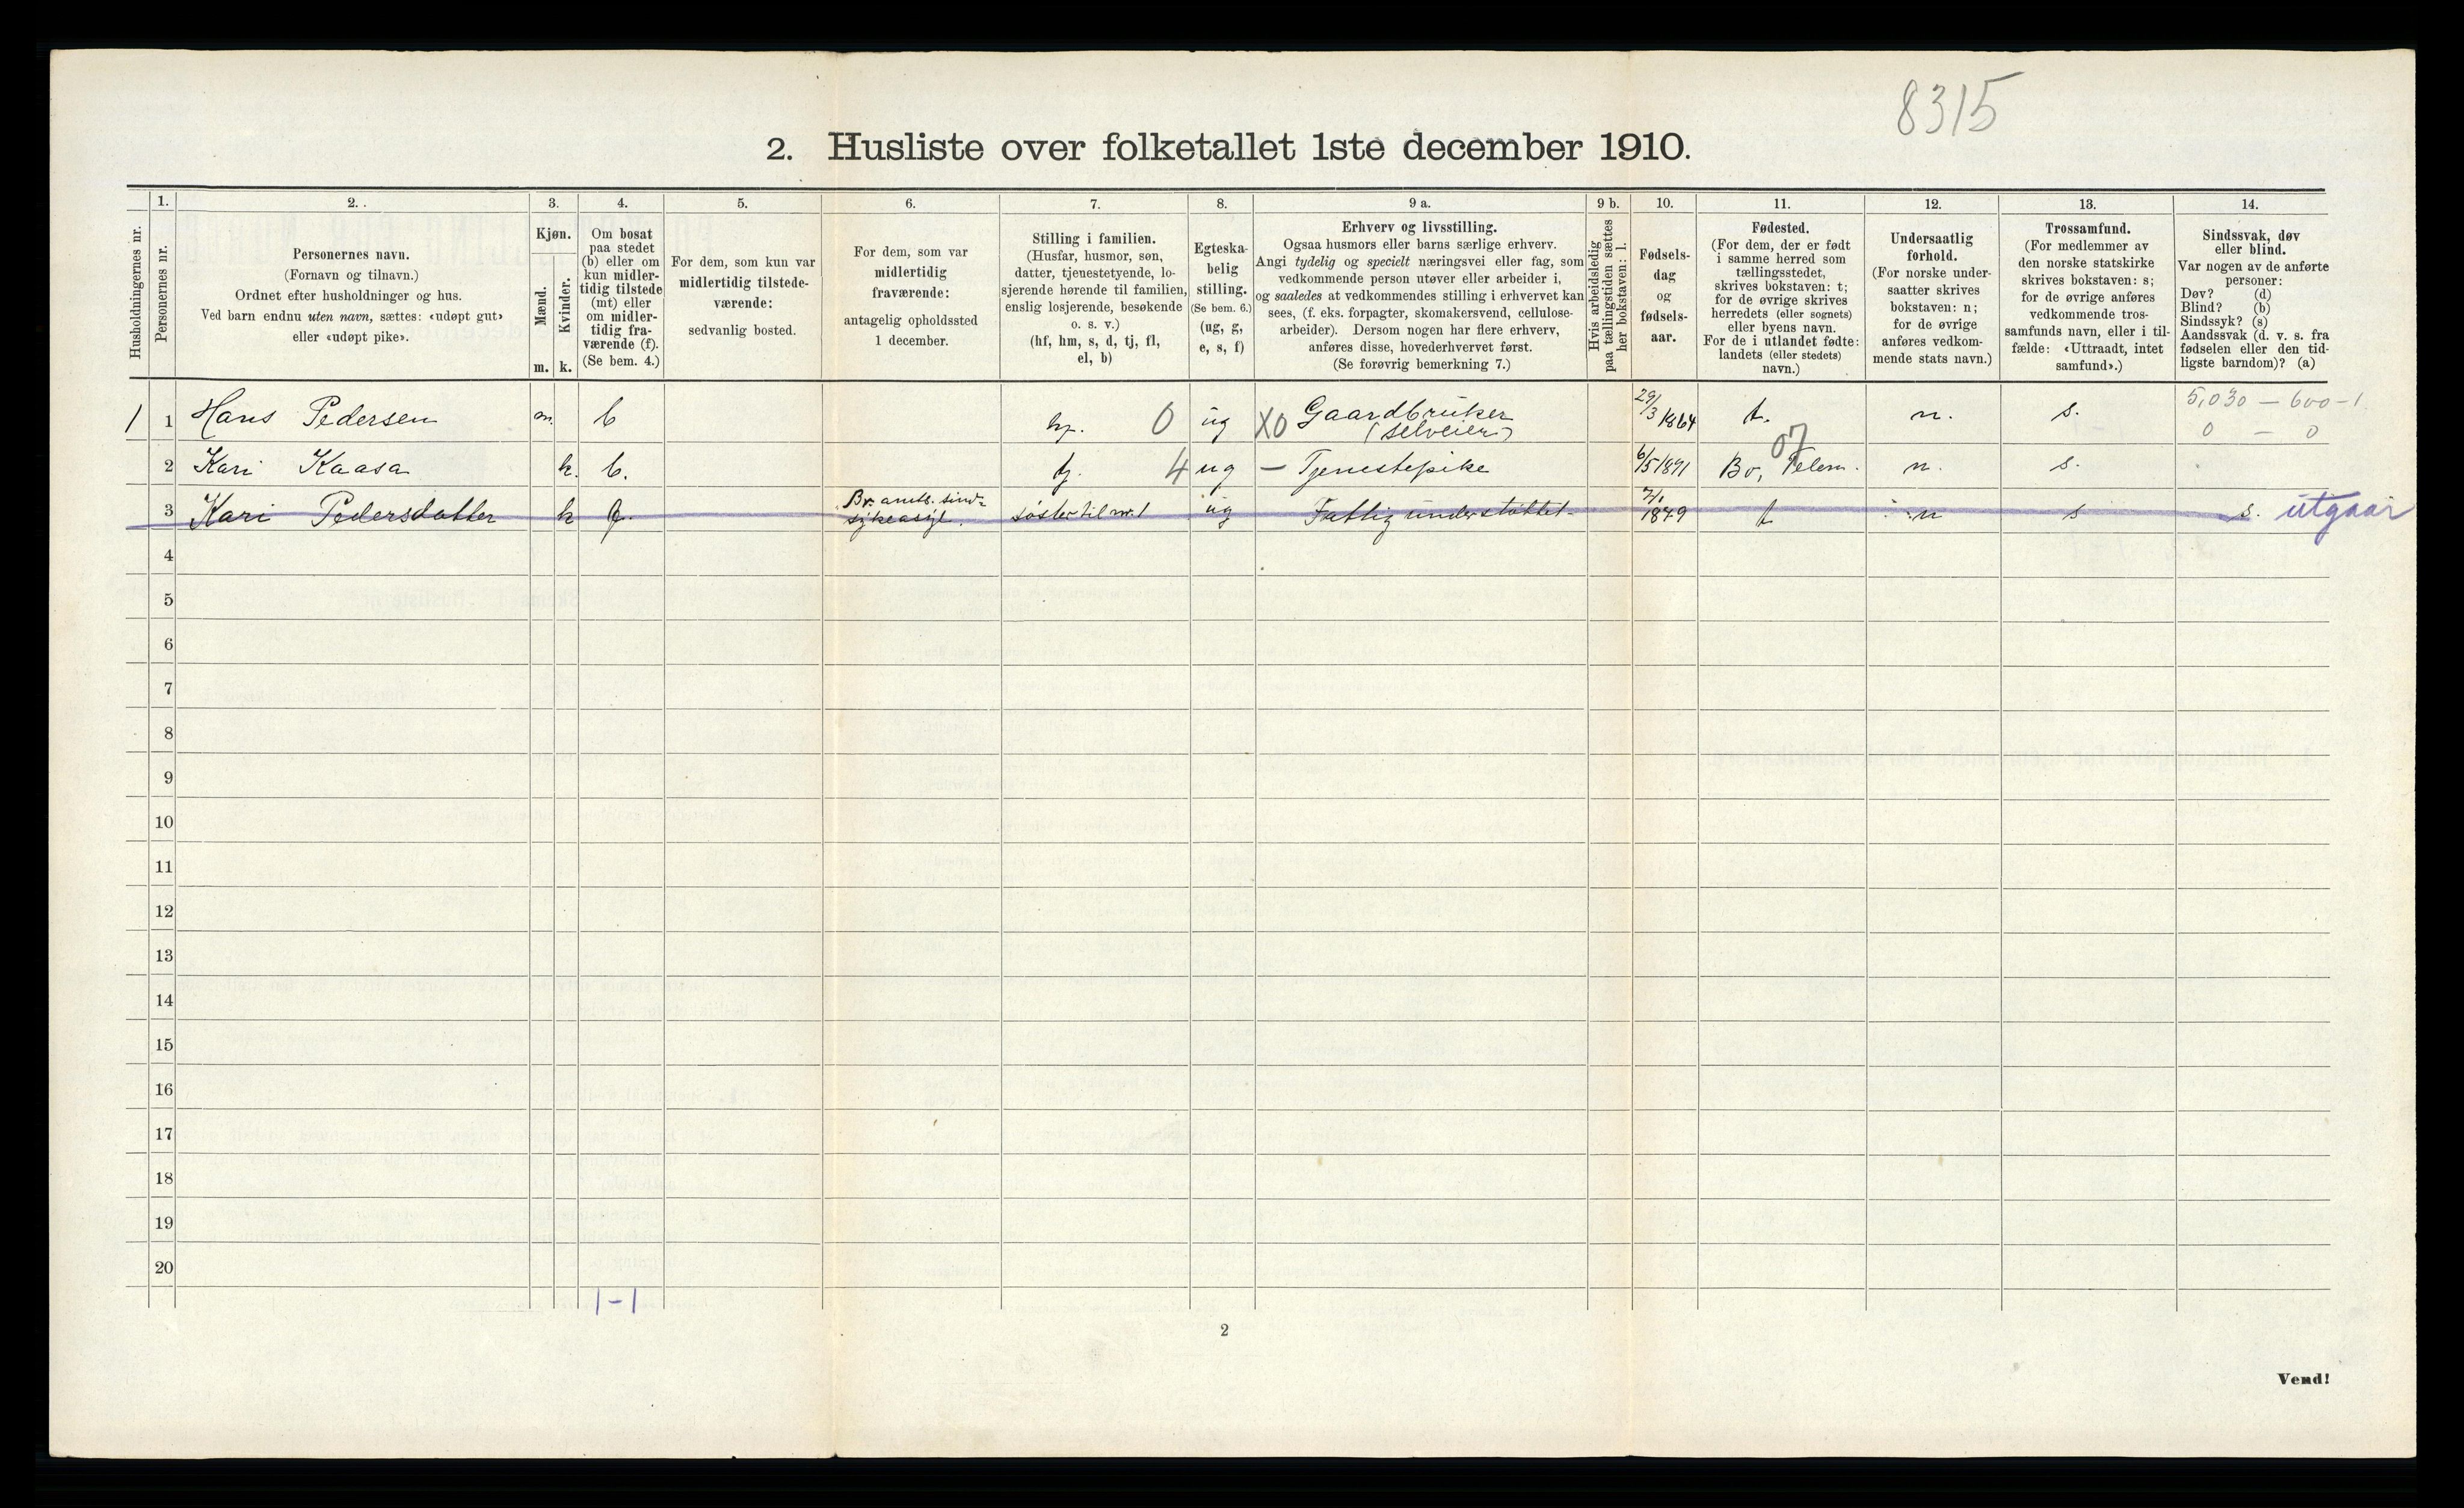 8315
2. Husliste over folketallet 1ste december 1910.
Husholdningernes nr.
1.
Personernes nr.
2.
Personernes navn.
(Fornavn og tilnavn.)
Ordnet efter husholdninger og hus.
Ved barn endnu uten navn, sættes: «udøpt gut»
eller «udøpt pike».
3.
Kjøn.
Mænd.
Kvinder.
m. k.
4.
Om bosat
paa stedet
(b) eller om
kun midler-
tidig tilstede
(mt) eller
om midler-
tidig fra-
værende (f).
(Se bem. 4.)
5.
For dem, som kun var
midlertidig tilstede-
værende:
sedvanlig bosted.
6.
For dem, som var
midlertidig
fraværende:
antagelig opholdssted
1 december.
7.
Stilling i familien.
(Husfar, husmor, søn,
datter, tjenestetyende, lo-
sjerende hørende til familien,
enslig losjerende, besøkende
o. s. v.)
(hf, hm, s, d, tj, fl,
el, b)
8.
Egteska-
belig
stilling.
(Se bem. 6.)
(ug, g,
e, s, f)
9 a.
Erhverv og livsstilling.
Ogsaa husmors eller barns særlige erhverv.
Angi tydelig og specielt næringsvei eller fag, som
vedkommende person utøver eller arbeider i,
og saaledes at vedkommendes stilling i erhvervet kan
sees, (f. eks. forpagter, skomakersvend, cellulose-
arbeider). Dersom nogen har flere erhverv,
anføres disse, hovederhvervet først.
(Se forøvrig bemerkning 7.)
9 b.
Hvis arbeidsledig
paa tællingstiden sættes
her bokstaven: l.
10.
Fødsels-
dag
og
fødsels-
aar.
11.
Fødested.
(For dem, der er født
i samme herred som
tællingsstedet,
skrives bokstaven: t;
for de øvrige skrives
herredets (eller sognets)
eller byens navn.
For de i utlandet fødte:
landets (eller stedets)
navn.)
12.
Undersaatlig
forhold.
(For norske under-
saatter skrives
bokstaven: n;
for de øvrige
anføres vedkom-
mende stats navn.)
13.
Trossamfund.
(For medlemmer av
den norske statskirke
skrives bokstaven: s;
for de øvrige anføres
vedkommende tros-
samfunds navn, eller i til-
fælde: «Uttraadt, intet
samfund».)
14.
Sindssvak, døv
eller blind.
Var nogen av de anførte
personer:
Døv? (d)
Blind? (b)
Sindssyk? (s)
Aandssvak (d. v. s. fra
fødselen eller den tid-
ligste barndom)? (a)
1 1 Hans Pedersen m. b hf. 0 ug X0 Gaardbruker (selveier) 29/3 1864 t. n. s. 5,030 — 600 - 1
0 — 0
07
2 Kari Kaasa k. b. tj. 4 ug — Tjenestepike 6/5 1891 Bø, Telem. n. s.
3 Kari Pedersdatter k f. Br. amts. sind- sykeasyl. søster til nr. 1 ug Fattig understøttet - 7/1 1849 t n s s. utgaar
4
5
6
7
8
9
10
11
12
13
14
15
16
17
18
19
20
1-1
2
Vend!